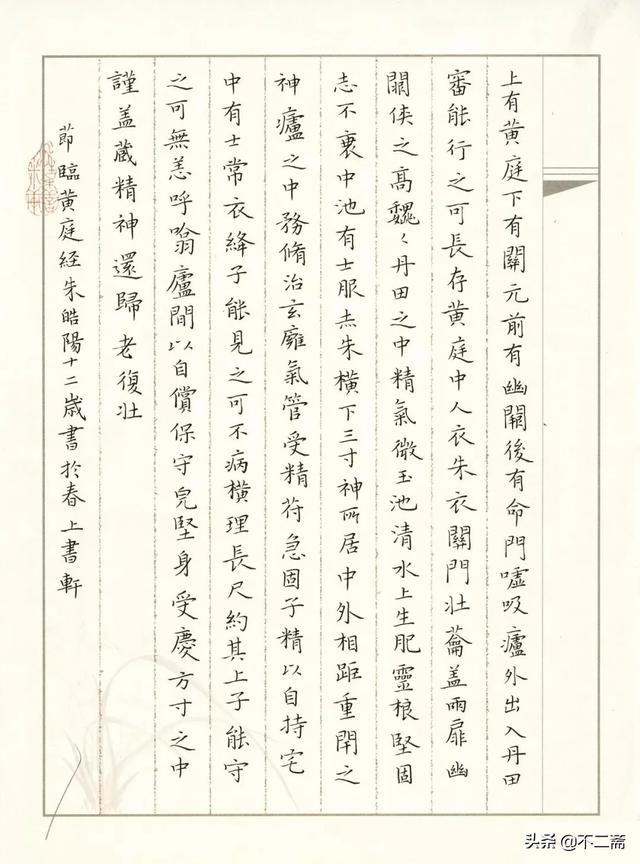 上有黄庭下有關元前有幽闕後有命門噓吸廬外出入丹田
審能行之可長存黄庭中人衣朱衣關門壯蘥盖兩扉幽
闕俠之高巍〻丹田之中精氣微玉池清水上生肥靈根堅固
志不衰中池有士服赤朱横下三寸神所居中外相距重閉之
神廬之中務脩治玄廱氣管受精苻急固子精以自持宅
中有士常衣絳子能見之可不病横理長尺約其上子能守
之可無恙呼噏廬間以自償保守皃堅身受慶方寸之中
謹盖藏精神還歸老復壯
節臨黄庭经朱皓陽十二歲書於春上書軒
头条@不二斋